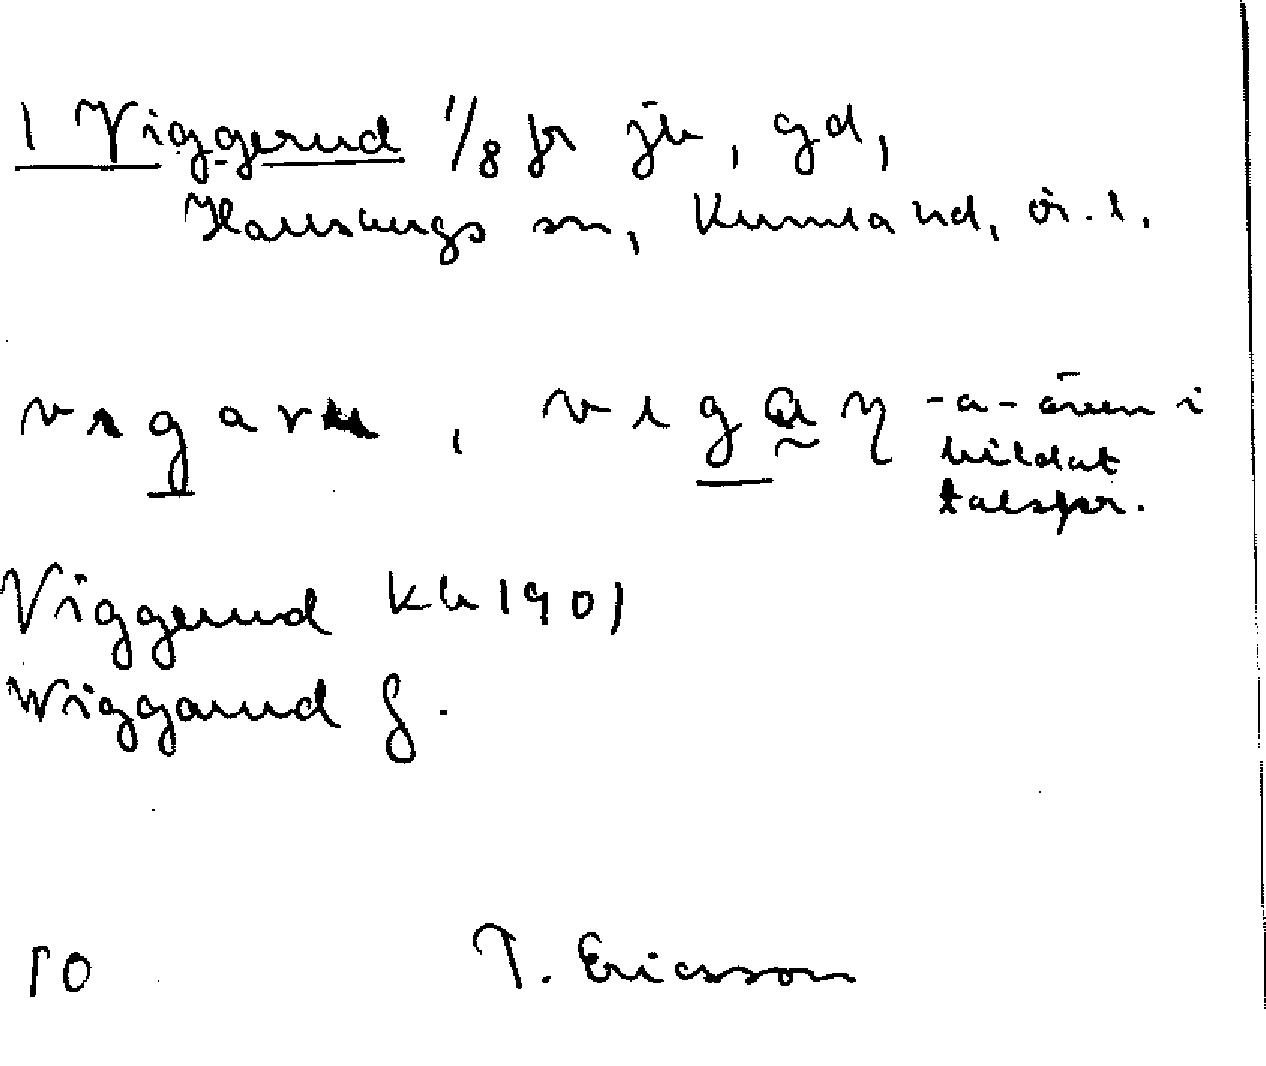 1 Viggerud 1/8 fr jb, gd,
Hallsbergs sn, Kumla hd, ör. l.
vigaru, vigaη -a- även i
bildat
talspr.
Viggerud kb 1901
Wiggarud f.
10 T. Ericsson